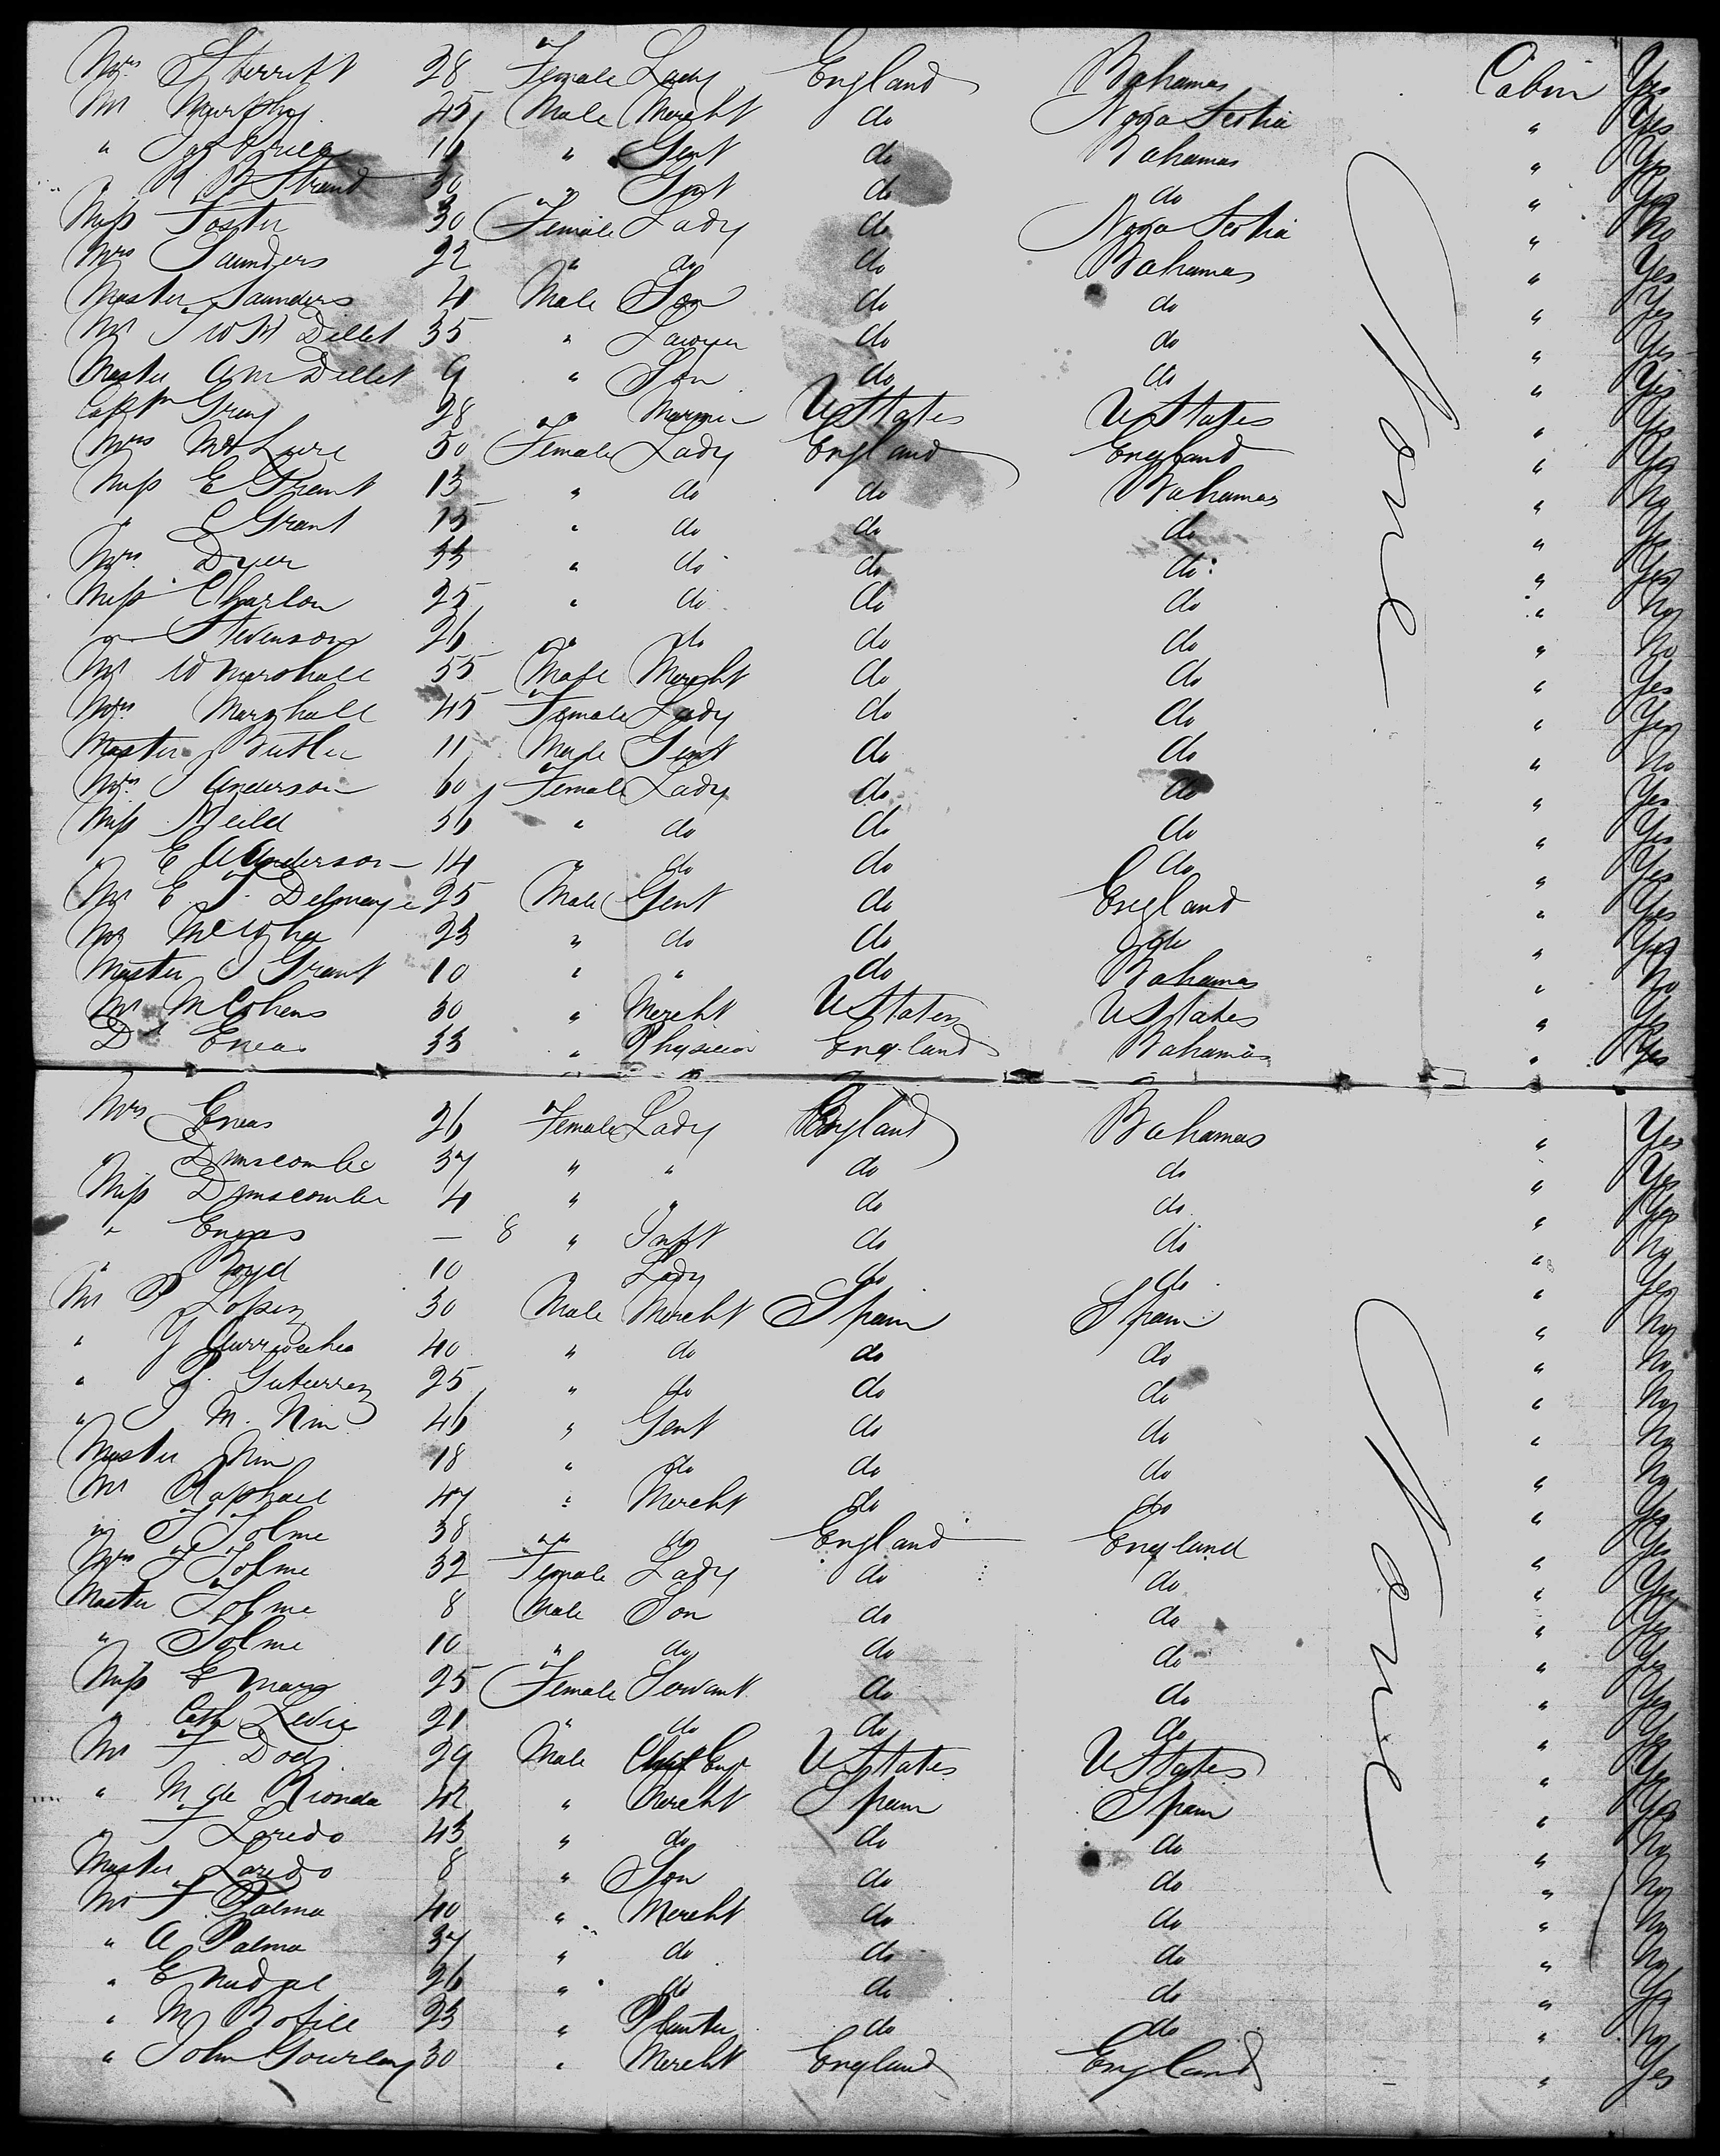 Mrs Sterritt 28 Female Lady England Bahamas Cabin Yes
Mr Murphy 45 Male Mercht do Nova Scotia " Yes
" 16 " Gent do Bahamas " Yes
" R B Strand 30 " Gent do do " Yes
Miss Foster 30 Female Lady do Nova Scotia " No
Mrs Saunders 22 " do do Bahamas " Yes
Master Saunders 4 Male Son do do " Yes
Mr T W H Dillet 35 " Lawyer do do " Yes
Master A M Dillet 9 " Son do do " Yes
Captn Gray 28 " Mariner U States U States " Yes
Mrs McLure 50 Female Lady England England " Yes
Miss E Grant 13 " do do Bahamas " No
" L Grant 15 " do do do " Yes
Mrs Dyer 33 " do do do " Yes
Miss Charlon 25 " do do do " No
" Stevenson 26 " do do do " No
Mr W Marshall 55 Male Mercht do do " Yes
Mrs Marshall 45 Female Lady do do " Yes
Master Butler 11 Male Gent do do " No
Mrs Anderson 60 Female Lady do do " Yes
Miss Neild 36 " do do do " Yes
" E A Anderson 14 " do do do " Yes
Mr E. T. 25 Male Gent do England " Yes
Mr 23 " do do do " Yes
Master J Grant 10 " " do Bahamas " No
Mr M Cohens 30 " Mercht U States U States " Yes
Dr Eneas 33 " Physician England Bahamas " Yes
None
Mrs Eneas 26 Female Lady England Bahamas " Yes
" Dunscombe 37 " " do do " Yes
Miss Dunscombe 4 " " do do " Yes
" Eneas — 8 " Inft do do " No
" Boyd 10 " Lady do do " Yes
Mr P Lopez 30 Male Mercht Spain Spain " No
" Y 40 " do do do " No
" P. Gutierrez 25 " do do do " No
" J M. Nin 46 " Gent do do " No
Master Nin 18 " do do do " No
Mr Raphael 47 " Mercht do do " Yes
" F Tolme 38 " do England England " Yes
Mrs F Tolme 32 Female Lady do do " Yes
Master Tolme 8 Male Son do do " Yes
" Tolme 10 " do do do " Yes
Miss E Mary 25 Female Servant do do " Yes
" Cath Levie 21 " do do do " Yes
Mr F Dod 29 Male Chief Engr U States U States " Yes
" M de Rionda 42 " Mercht Spain Spain " Yes
" F Laredo 43 " do do do " No
Master Laredo 8 " Son do do " No
Mr F Palma 40 " Mercht do do " No
" A Palma 37 " do do do " No
" E 26 " do do do " Yes
" M Bofill 23 " Planter do do " No
" John Gourlay 30 " Mercht England England " Yes
None